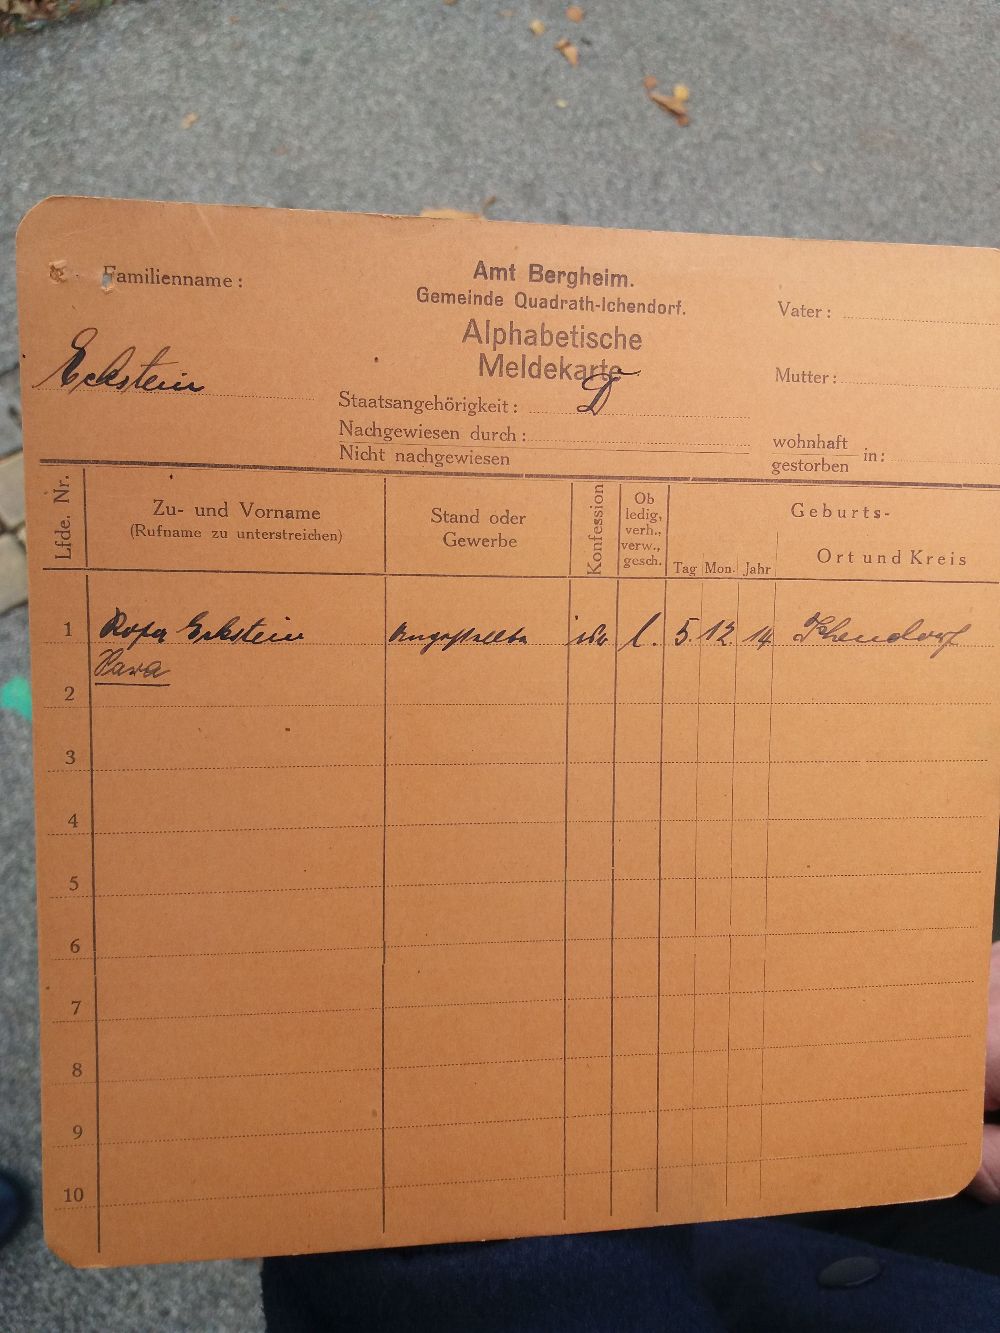 Familienname:
Eckstein
Amt Bergheim.
Gemeinde Quadrath-Ichendorf.
Alphabetische
Meldekarte
Staatsangehörigkeit: D
Nachgewiesen durch:
Nicht nachgewiesen
Vater:
Mutter:
wohnhaft
gestorben in:
Lfde. Nr.
Zu- und Vorname
(Rufname zu unterstreichen)
Stand oder
Gewerbe
Konfession
Ob
ledig,
verh.,
verw.,
gesch.
Geburts-
Tag Mon. Jahr
Ort und Kreis
1 Rosa Eckstein Angestellte isr. l. 5. 12. 14 Ichendorf
Sara
2
3
4
5
6
7
8
9
10